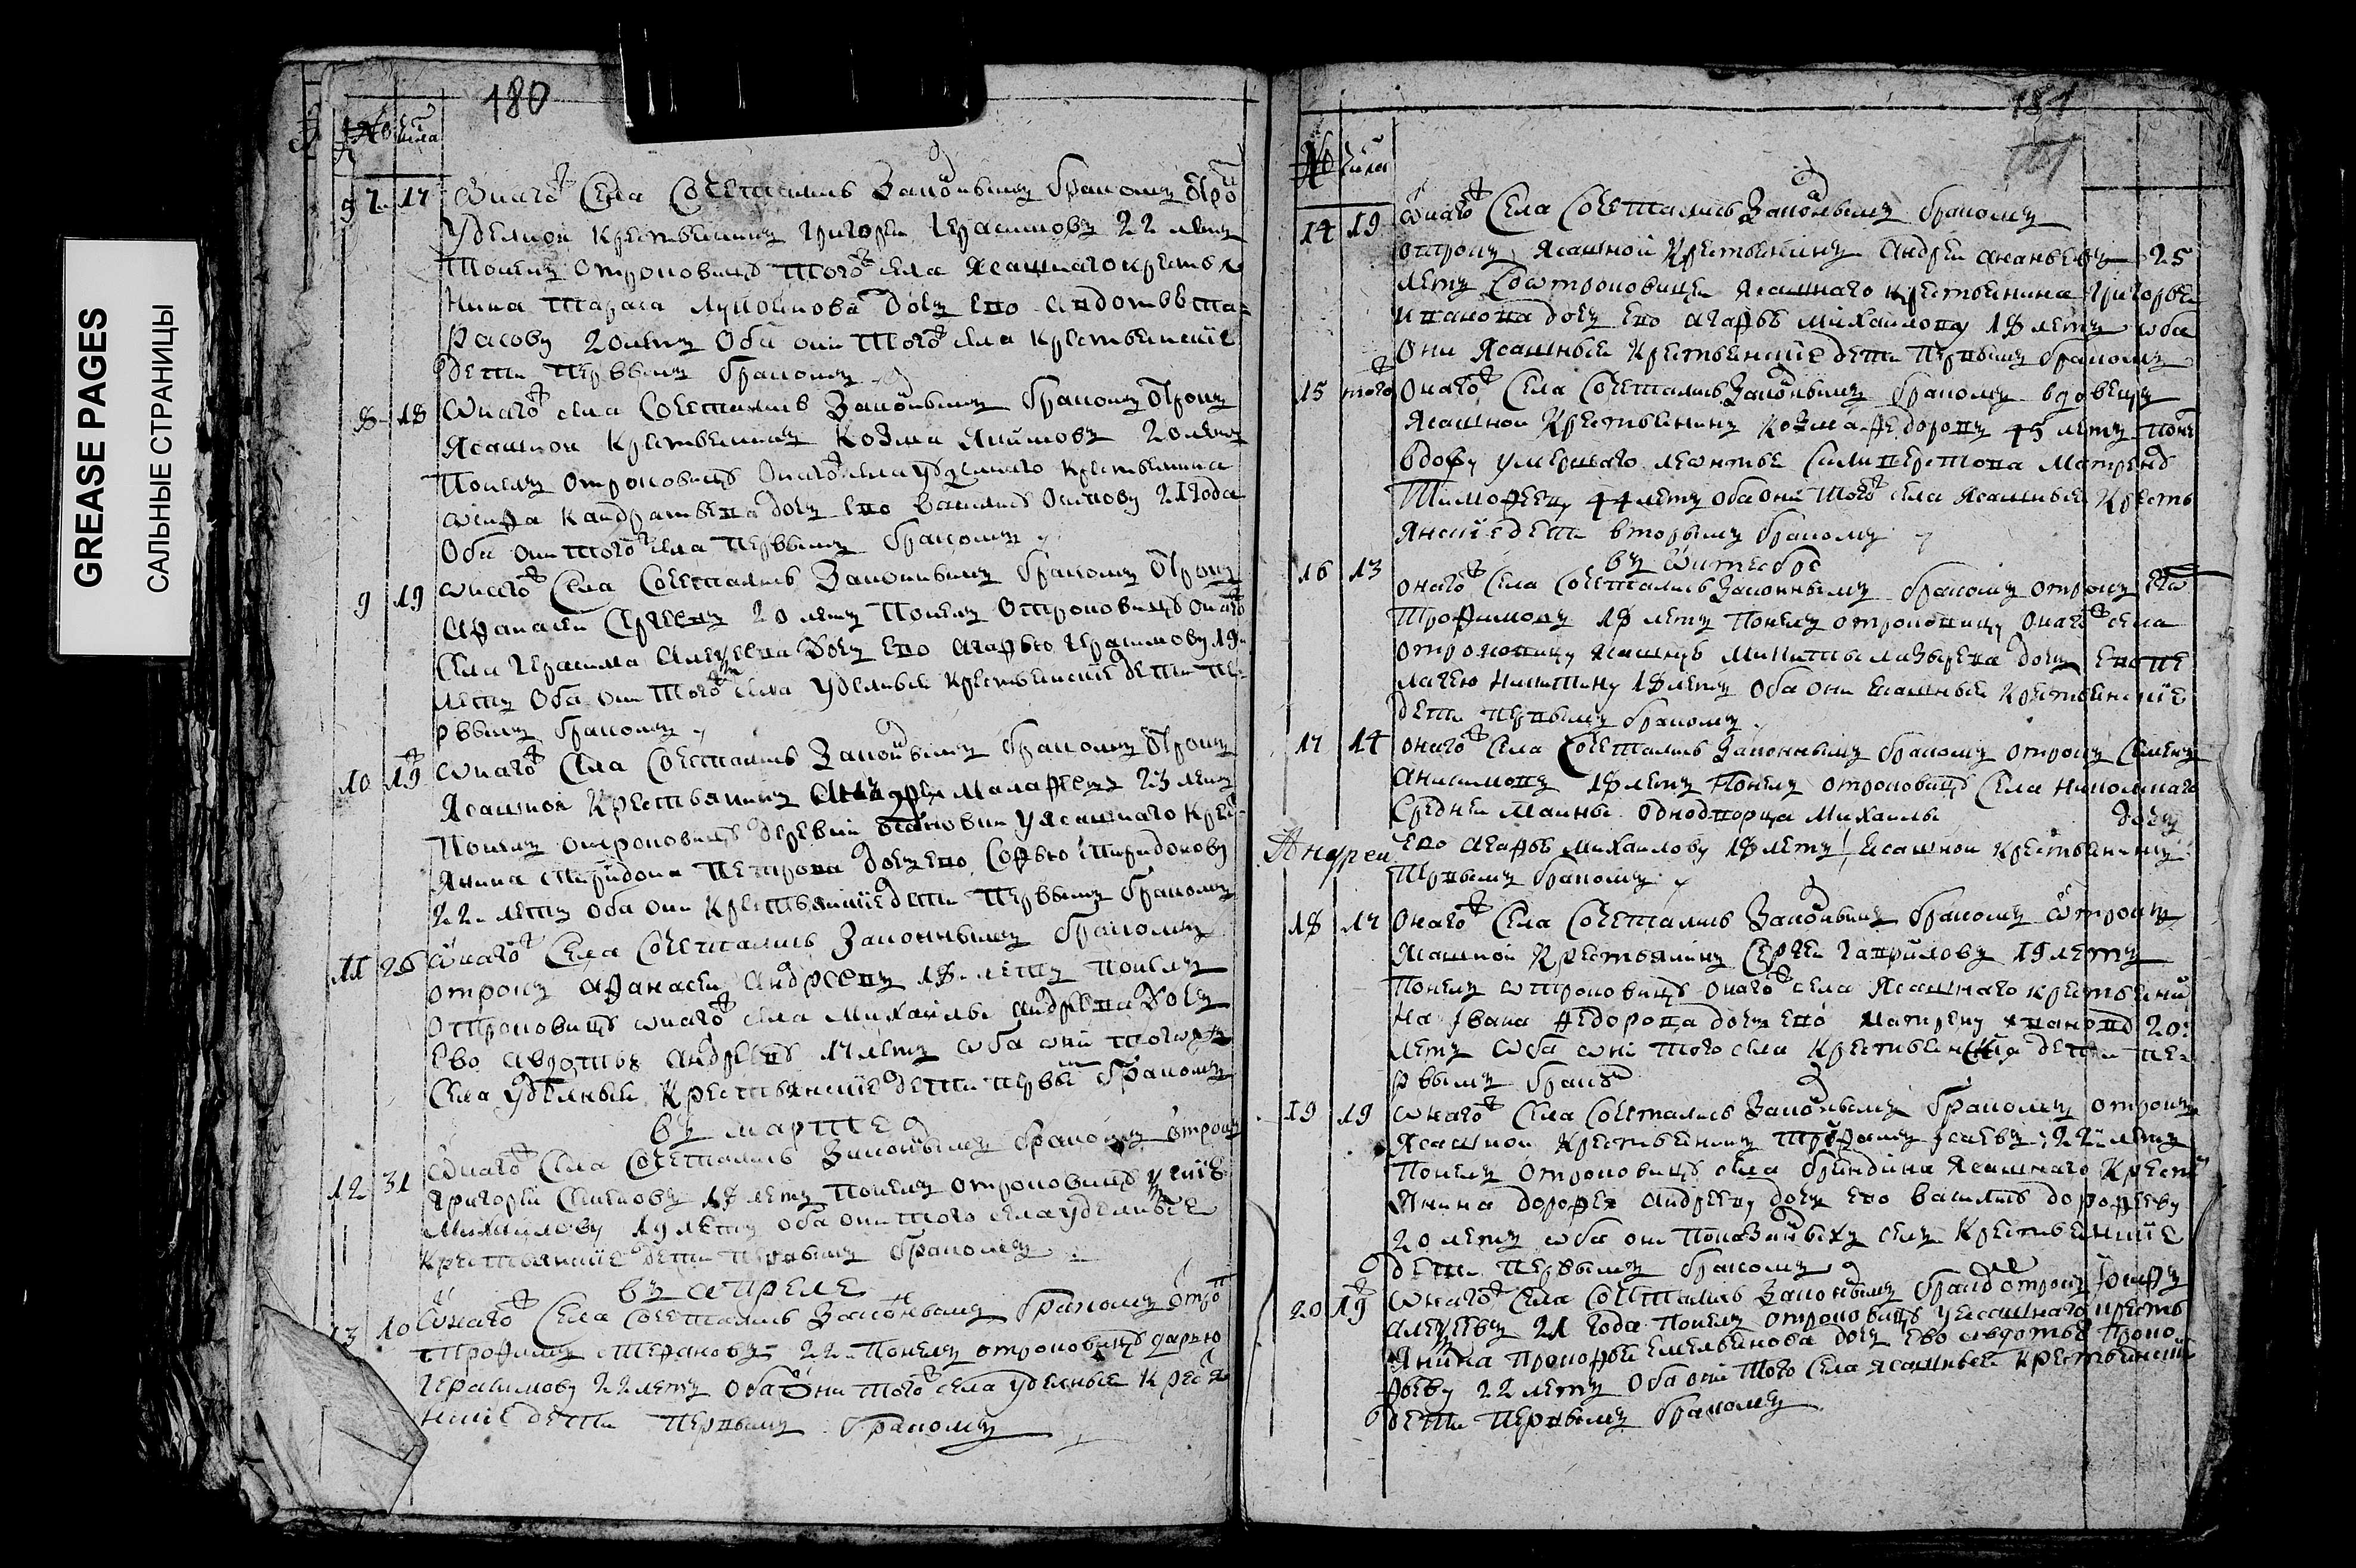 GREASE PAGES
САЛЬНЫЕ СТРАНИЦЫ
180
№ числа
7 17 Онаго села сочетались законнымъ бракомъ отро
Удельной крестьянинъ Григорей Герасимовъ 22 летъ
Понелъ отроковицъ того села ясашнаго крестья
нина Тараса дочь ево Авдотью Та
расову 20 летъ оба они того села крестьянские
дети первымъ бракомъ
8 18 Онаго села сочетались законнымъ бракомъ отрокъ
Ясашной крестьянинъ Козма Якимовъ 20 летъ
Понелъ отроковицъ онаго села удельнаго крестьянина
Кандратьева дочь ево Василису Осипову 21 года
Оба они того села первымъ бракомъ
9 19 Онаго села сочетались законнымъ бракомъ отрокъ
Афанасей Сергеевъ 20 летъ понелъ отроковицъ онаго
села Герасима Алексеева дочь ево Агафью Герасимову 19
летъ оба они того села удельные крестьянские дети пе
рвымъ бракомъ
10 19 Онаго села сочетались законнымъ бракомъ отрокъ
Ясашной крестьянинъ Андрей Малафеевъ 23 летъ
Понелъ отроковицъ деревни ясашнаго крес
янина Спиридона Петрова дочь ево Софью Спиридонову
22 летъ оба они крестьянские дети первымъ бракомъ
11 26 Онаго села сочетались законнымъ бракомъ
отрокъ Афанасей Андреевъ 18 летъ понелъ
отроковицъ онаго села Михайлы Андреева дочь
ево Авдотью Андрееву 17 летъ оба они того
села удельные крестьянские дети первы бракомъ
въ марте
12 31 Онаго села сочетались законнымъ бракомъ отрокъ
Григорей Семеновъ 18 летъ понелъ отроковицъ
Михайлову 19 летъ оба они того села удельные
крестьянские дети первымъ бракомъ
въ апреле
13 10 Онаго села сочетались законнымъ бракомъ отро
Трофимъ Степановъ 22 понелъ отроковицъ Дарью
Герасимову 22 летъ оба они того села удельные крестья
нские дети первымъ бракомъ
181
№ числа
14 19 Онаго села сочетались законнымъ бракомъ
отрокъ ясашной крестьянинъ Андрей Ананьевъ 25
летъ со отроковицей ясашнаго крестьянина Григорья
Иванова дочь ево Агафью Михайлову 18 летъ оба
они ясашные крестьянские дети первымъ бракомъ
15 того Онаго села сочетались законнымъ бракомъ вдовецъ
Ясашной крестьянинъ Козма Федоровъ 45 летъ поне
вдову умершаго Леонтья Силиверстова Матрену
Тимофееву 44 летъ оба они того села ясашные кресть
янские дети вторымъ бракомъ
въ октебре
16 13 онаго села сочетались законнымъ бракомъ отрокъ
Трофимовъ 18 летъ понелъ отроковицу онаго села
отроковицу Никиты дочь ево Пе
лагею Никитину 18 летъ оба они ясашные крестьянские
дети первымъ бракомъ
17 14 онаго села сочетались законнымъ бракомъ отрокъ Семенъ
Анисимовъ 18 летъ понелъ отроковицъ села Никольнаго
Средней Маины однодворца Михаилы дочь
Андрей ево Агафью Михайлову 18 летъ ясашной крестьянинъ
первымъ бракомъ
18 17 Онаго села сочетались законнымъ бракомъ отрокъ
Ясашной крестьянинъ Сергей Гавриловъ 19 летъ
Понелъ отроковицъ онаго села ясашнаго крестьяни
на Ивана Федорова дочь ево Матрену Иванову 20
летъ оба они того села крестьянския дети пе
рвымъ бракомъ
19 19 Онаго села сочетались законнымъ бракомъ отрокъ
Ясашной крестьянинъ Трофимъ Исаевъ 22 летъ
Понелъ отроковицъ села Бряндина ясашнаго крест
янина Дорофея Андреева дочь ево Василису Дорофееву
20 летъ оба они показанныхъ селъ крестьянские
дети первымъ бракомъ
20 19 Онаго села сочетались законнымъ бракомъ отрокъ
Алексеевъ 21 года понелъ отроковицъ ясашнаго кресть
янина Прокофья Емельянова дочь ево Авдотью Проко
фьеву 22 летъ оба они того села ясашные крестьянские
дети первымъ бракомъ